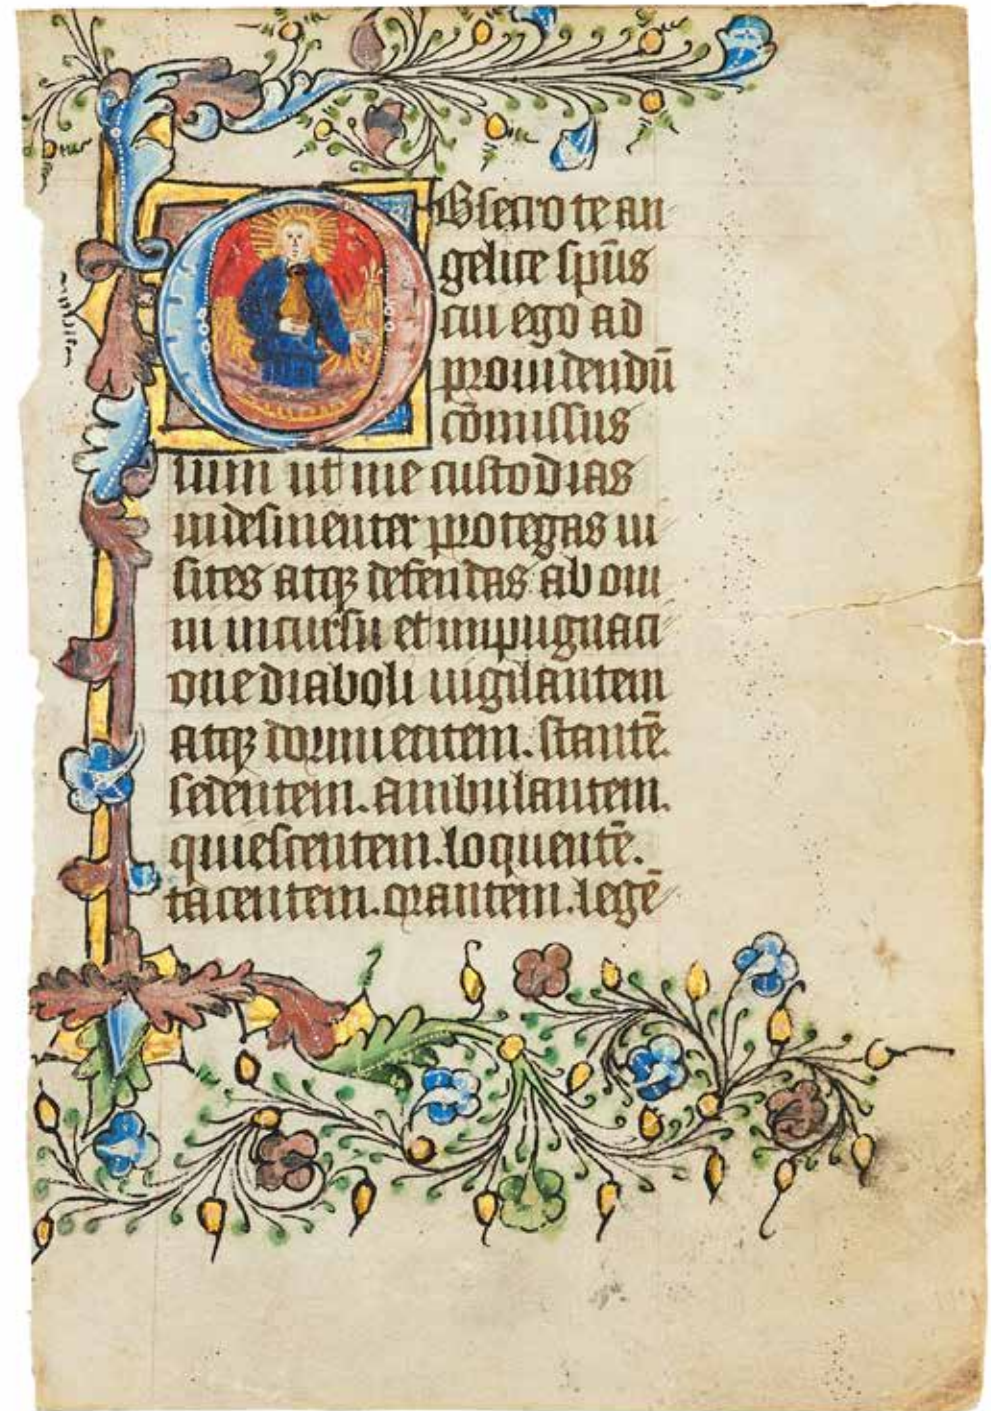 OBsecro te an
gelice sp̃us
cui ego ad
prouidendũ
cõmissus
sum ut me custodias
indesinenter protegas ui
sites atqꝫ defendas ab om
ni incursu et impugnati
one diaboli uigilantem
atqꝫ dormientem. stantẽ.
sedentem. ambulantem.
quiescentem. loquentẽ.
tacentem. orantem. legẽ